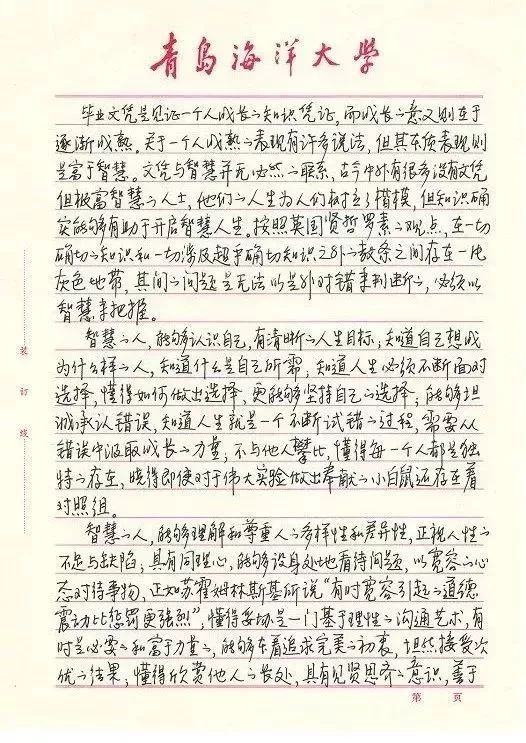 青岛海洋大学
毕业文凭是见证一个人成长之知识凭证，而成长之意义则在于
逐渐成熟。关于一个人成熟之表现有许多说法，但其本质表现则
是富于智慧。文凭与智慧并无必然之联系，古今中外有很多没有文凭
但极富智慧之人士，他们之人生为人们树立了楷模，但知识确
实能够有助于开启智慧人生。按照英国贤哲罗素之观点，在一切
确切之知识和一切涉及超乎确切知识之外之教条之间存在一片
灰色地带，其间之问题是无法以是非对错来判断之，必须以
智慧来把握。
智慧之人，能够认识自己，有清晰之人生目标，知道自己想成
为什么样之人，知道什么是自己所需，知道人生必须不断面对
选择，懂得如何做出选择，更能够坚持自己之选择；能够坦
诚承认错误，知道人生就是一个不断试错之过程，需要从
错误中汲取成长之力量，不与他人攀比，懂得每一个人都是独
特之存在，晓得即使对于伟大实验做出奉献之小白鼠还存在着
对照组。
智慧之人，能够理解和尊重人之多样性和差异性，正视人性之
不足与缺陷；具有同理心，能够设身处地看待问题，以宽容之心
态对待事物，正如苏霍姆林斯基所说“有时宽容引起之道德
震动比惩罚更强烈”，懂得妥协是一门基于理性之沟通艺术，有
时是必要之和富于力量之，能够本着追求完美之初衷，坦然接受次
优之结果，懂得欣赏他人之长处，具有见贤思齐之意识，善于
装
订
线
第 页